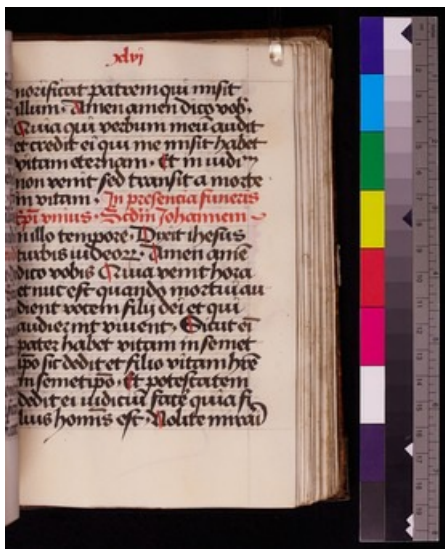 xlvi
norificat patrem qui misit
illum. Amen amen dico vob̄.
Quia qui verbum meū audit
et credit ei qui me misit habet
vitam eternam. Et in iudi
non venit sed transit a morte
in vitam. In presencia funeris
Scdm̄ Johannem
In illo tempore. Dixit ihesus
turbis iudeorꝝ. Amen amē
dico vobis Quia venit hora
et nūc est quando mortui au
dient vocem filij dei et qui
audierint vivent. Sicut em̄
pater habet vitam in semet
ip̄o sic dedit et filio vitam h̄re
in semetip̄o. Et potestatem
dedit ei iudiciū facē quia fi
lius hominis est. Nolite mirari